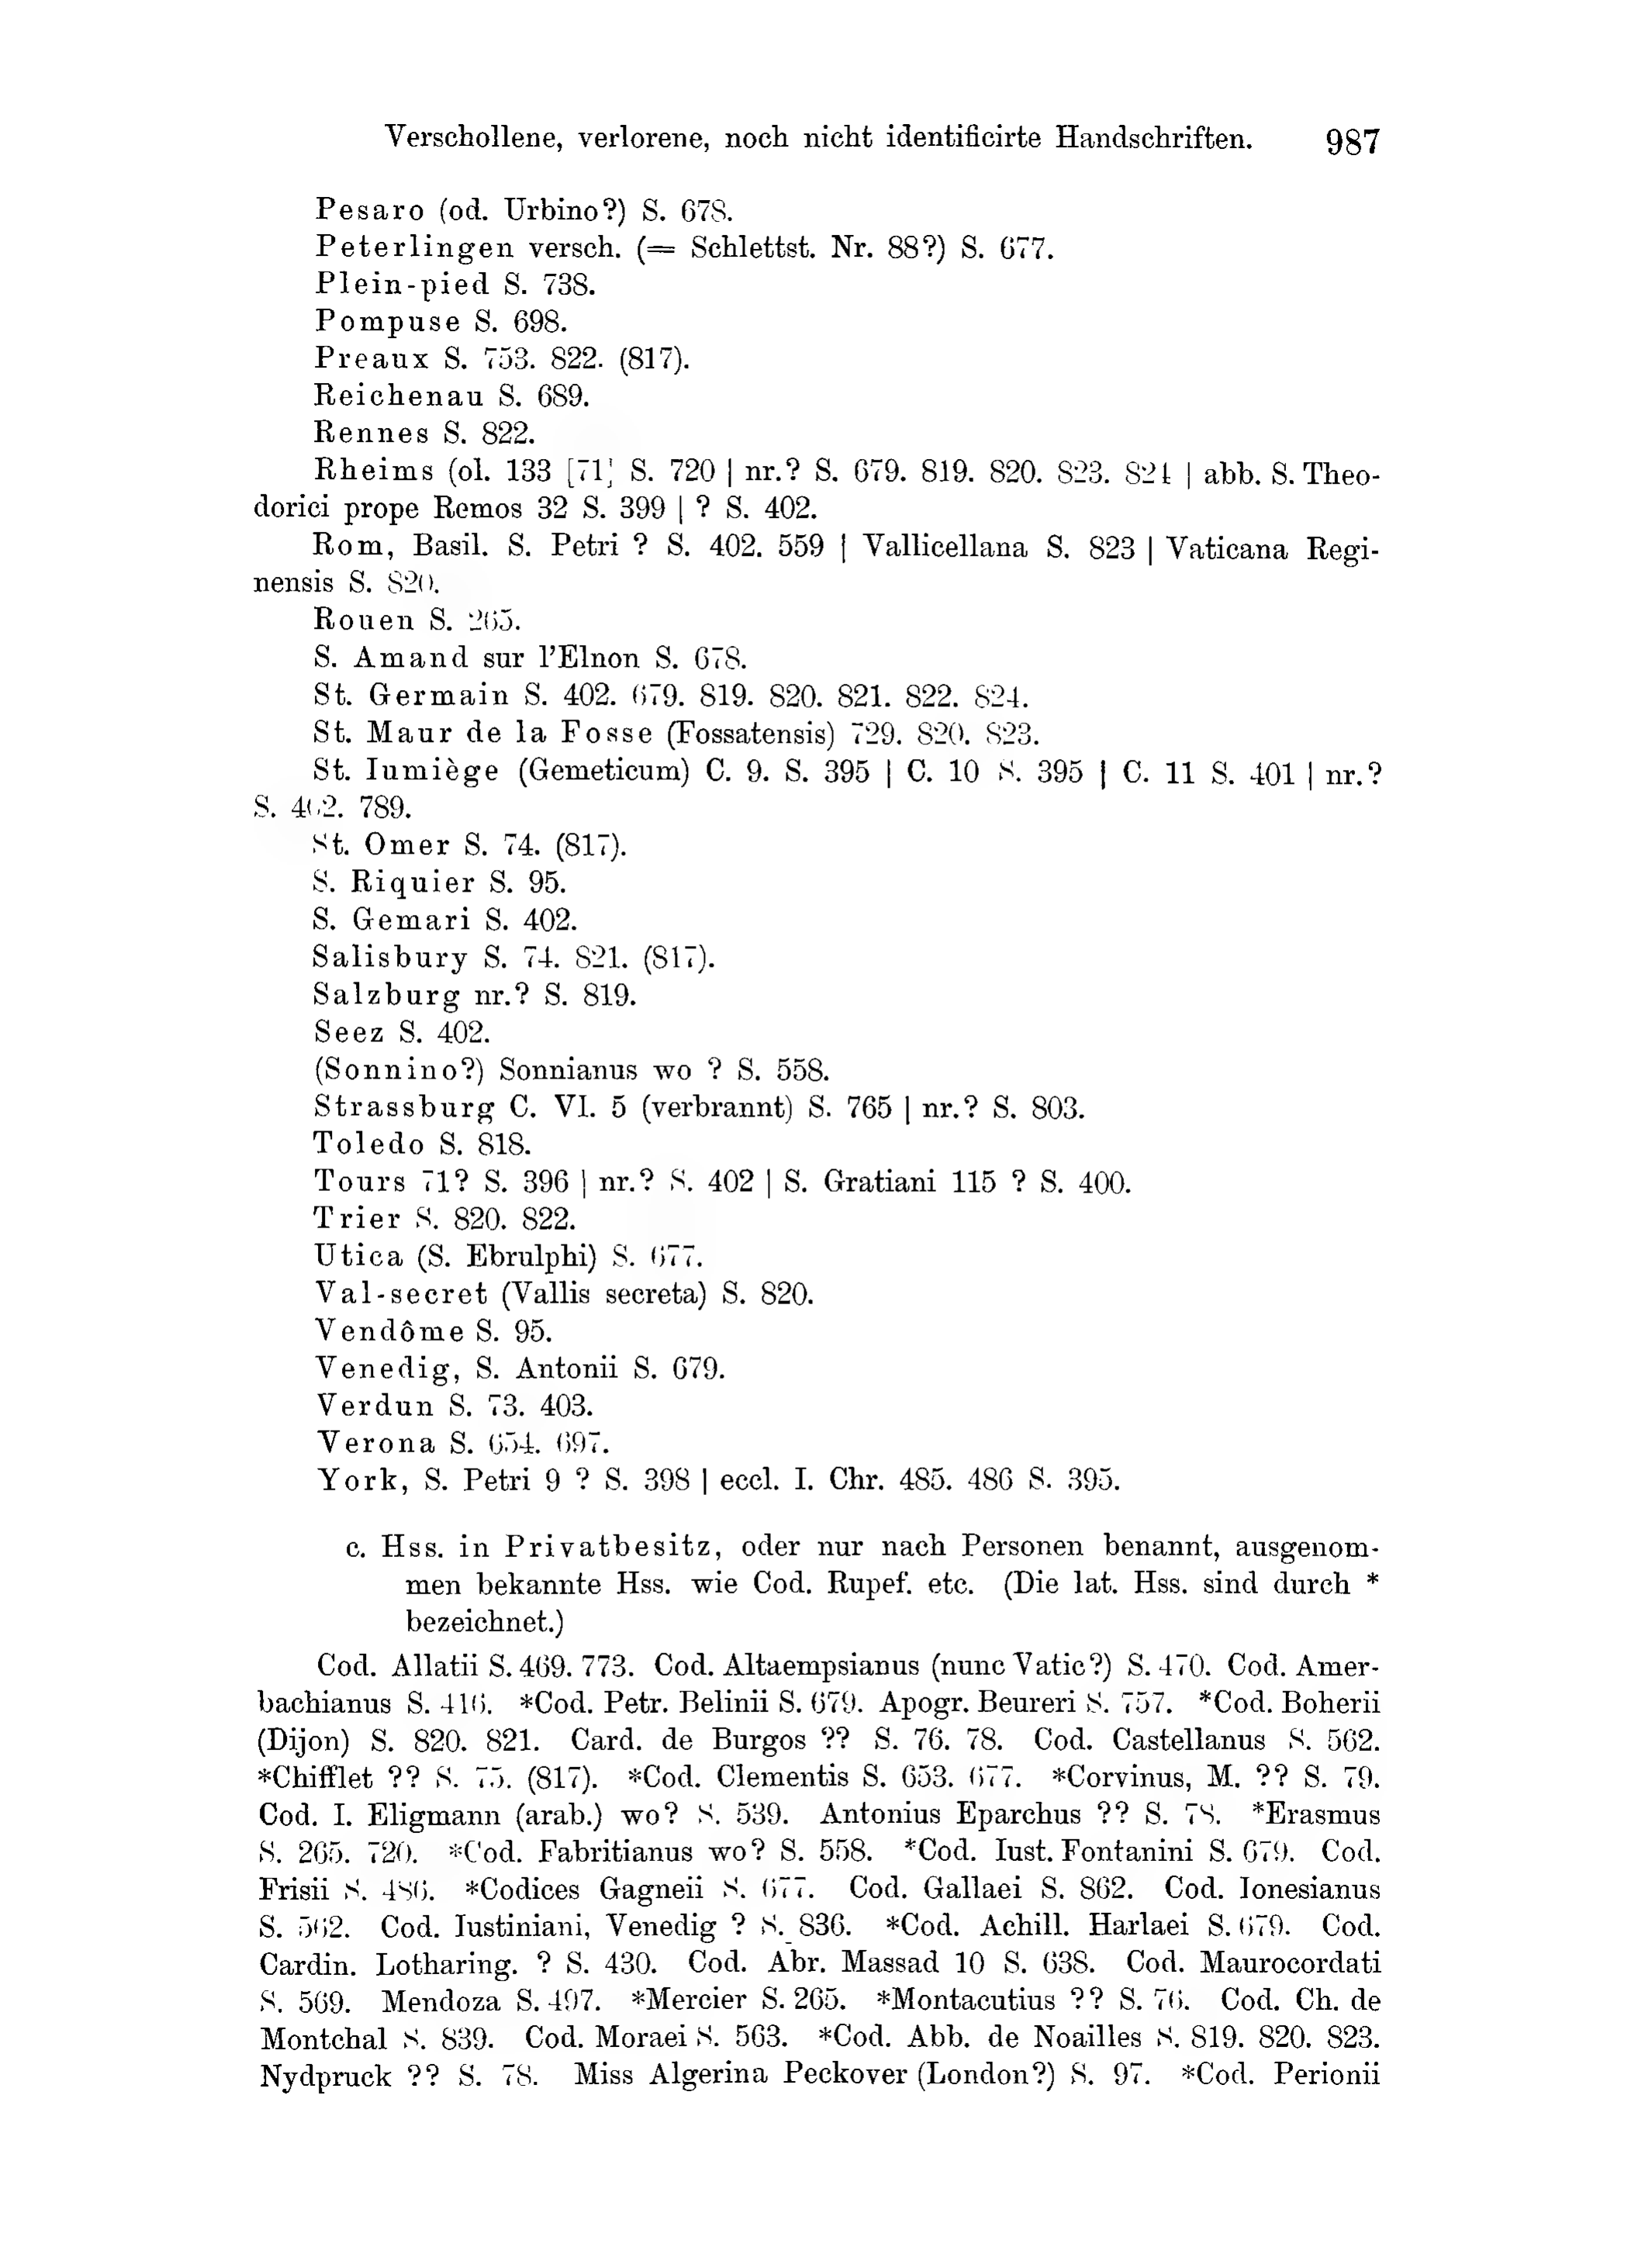 Verschollene, verlorene, noch nicht identificirte Handschriften. 987
Pesaro (od. Urbino?) S. 678.
Peterlingen versch. (= Schlettst. Nr. 88?) S. 677.
Plein-pied S. 738.
Pompuse S. 698.
Preaux S. 753. 822. (817).
Reichenau S. 689.
Rennes S. 822.
Rheims (ol. 133 [71] S. 720 | nr.? S. 679. 819. 820. 823. 824 | abb. S. Theo-
dorici prope Remos 32 S. 399 | ? S. 402.
Rom, Basil. S. Petri ? S. 402. 559 | Vallicellana S. 823 | Vaticana Regi-
nensis S. 820.
Rouen S. 265.
S. Amand sur l'Elnon S. 678.
St. Germain S. 402. 679. 819. 820. 821. 822. 824.
St. Maur de la Fosse (Fossatensis) 729. 820. 823.
St. Iumiège (Gemeticum) C. 9. S. 395 | C. 10 S. 395 | C. 11 S. 401 | nr.?
S. 402. 789.
St. Omer S. 74. (817).
S. Riquier S. 95.
S. Gemari S. 402.
Salisbury S. 74. 821. (817).
Salzburg nr.? S. 819.
Seez S. 402.
(Sonnino?) Sonnianus wo ? S. 558.
Strassburg C. VI. 5 (verbrannt) S. 765 | nr.? S. 803.
Toledo S. 818.
Tours 71? S. 396 | nr.? S. 402 | S. Gratiani 115 ? S. 400.
Trier S. 820. 822.
Utica (S. Ebrulphi) S. 677.
Val-secret (Vallis secreta) S. 820.
Vendôme S. 95.
Venedig, S. Antonii S. 679.
Verdun S. 73. 403.
Verona S. 654. 697.
York, S. Petri 9 ? S. 398 | eccl. I. Chr. 485. 486 S. 395.
c. Hss. in Privatbesitz, oder nur nach Personen benannt, ausgenom-
men bekannte Hss. wie Cod. Rupef. etc. (Die lat. Hss. sind durch *
bezeichnet.)
Cod. Allatii S. 469. 773. Cod. Altaempsianus (nunc Vatic?) S. 470. Cod. Amer-
bachianus S. 416. *Cod. Petr. Belinii S. 679. Apogr. Beureri S. 757. *Cod. Boherii
(Dijon) S. 820. 821. Card. de Burgos ?? S. 76. 78. Cod. Castellanus S. 562.
*Chifflet ?? S. 75. (817). *Cod. Clementis S. 653. 677. *Corvinus, M. ?? S. 79.
Cod. I. Eligmann (arab.) wo? S. 539. Antonius Eparchus ?? S. 78. *Erasmus
S. 265. 720. *Cod. Fabritianus wo? S. 558. *Cod. Iust. Fontanini S. 679. Cod.
Frisii S. 486. *Codices Gagneii S. 677. Cod. Gallaei S. 862. Cod. Ionesianus
S. 562. Cod. Iustiniani, Venedig ? S. 836. *Cod. Achill. Harlaei S. 679. Cod.
Cardin. Lotharing. ? S. 430. Cod. Abr. Massad 10 S. 638. Cod. Maurocordati
S. 569. Mendoza S. 497. *Mercier S. 265. *Montacutius ?? S. 76. Cod. Ch. de
Montchal S. 839. Cod. Moraei S. 563. *Cod. Abb. de Noailles S. 819. 820. 823.
Nydpruck ?? S. 78. Miss Algerina Peckover (London?) S. 97. *Cod. Perionii